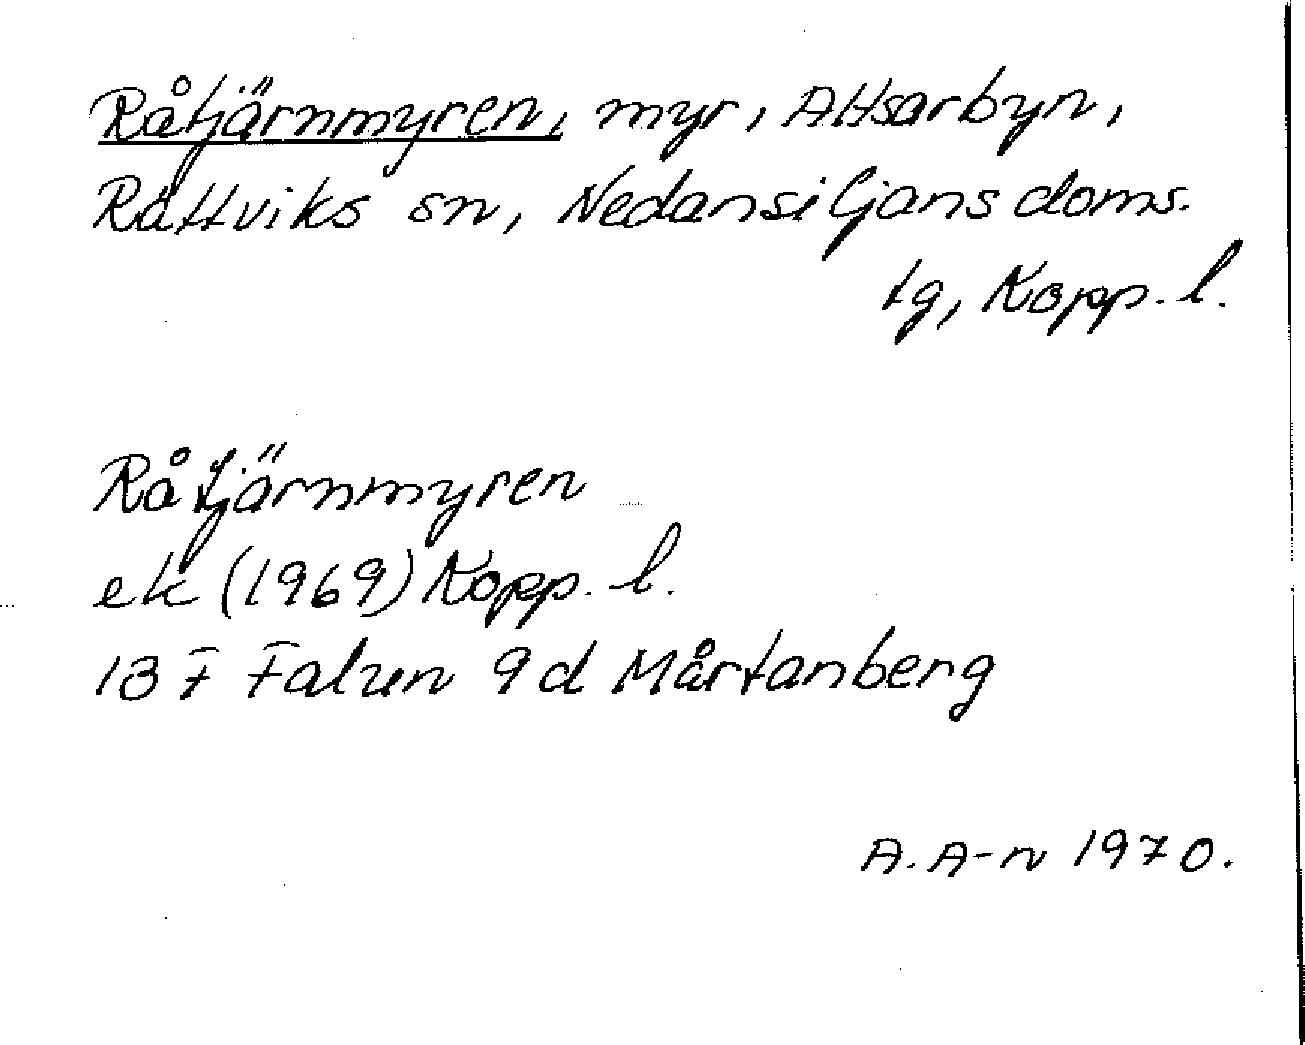 Råtjärnmyren, myr, Altsarbyn,
Rättviks sn, Nedansiljans doms.
tg, Kopp. l.
Råtjärnmyren
ek (1969) Kopp. l.
13 F Falun 9 d Mårtanberg
A. A-n 1970.